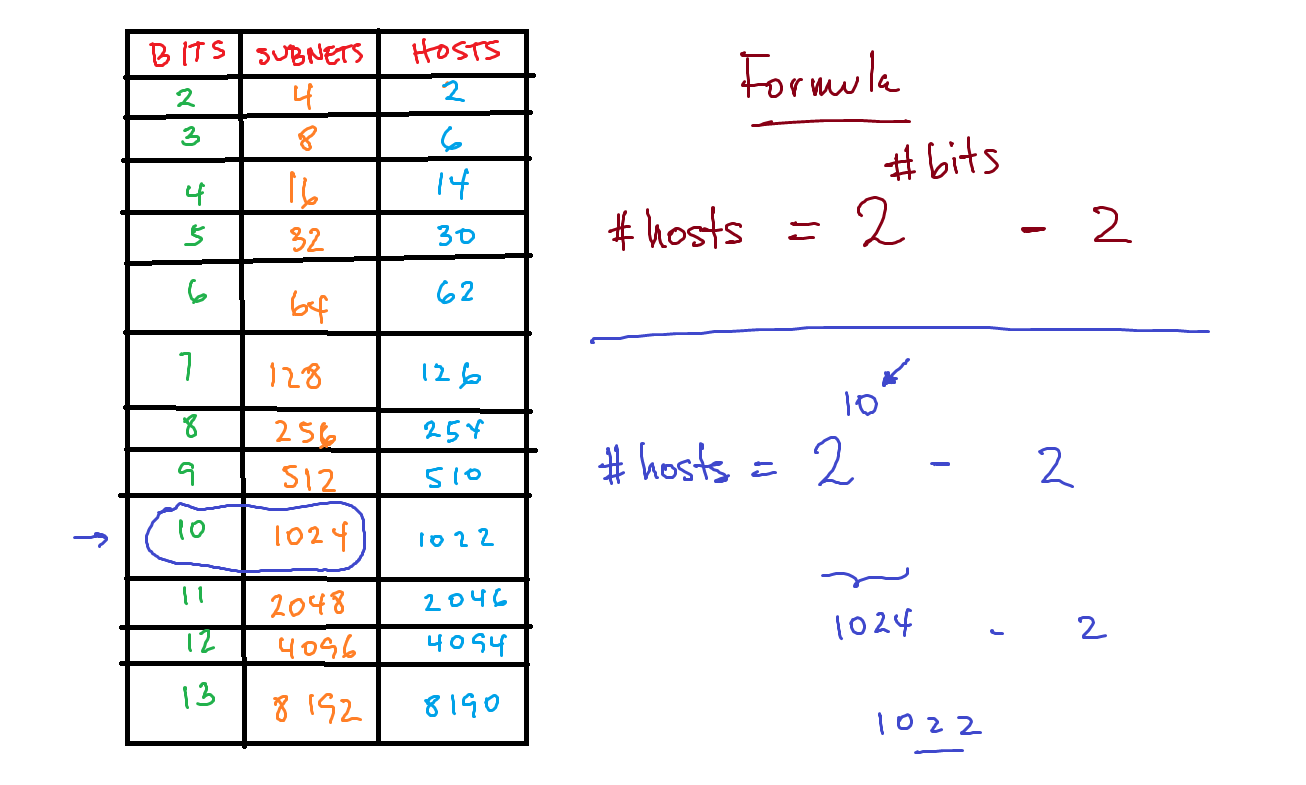 BITS SUBNETS HOSTS
2 4 2
3 8 6
4 16 14
5 32 30
6 64 62
7 128 126
8 256 254
9 512 510
→ 10 1024 1022
11 2048 2046
12 4096 4094
13 8192 8190
Formula
#bits
# hosts = 2 - 2
10
# hosts = 2 - 2
1024 - 2
1022